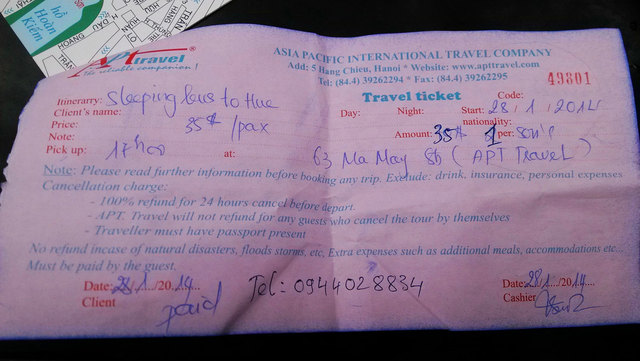 hồ
Hoàn
Kiếm
HOÀNG
TRẦN
APT travel ®
The reliable companion !
ASIA PACIFIC INTERNATIONAL TRAVEL COMPANY
Add: 5 Hang Chieu, Hanoi * Website: www.apttravel.com
Tel: (84.4) 39262294 * Fax: (84.4) 39262295
49801
Travel ticket
Code:
Itinerrary: Sleeping bus to Hue
Day: Night: Start: 28/1/2014
Client's name:
nationality:
Price: 35$/pax
Amount: 35$ 1 per: son's
Note:
Pick up: 17h00 at: 63 Ma May St (APT TRAVEL)
Note: Please read further information before booking any trip. Exclude: drink, insurance, personal expenses
Cancellation charge:
- 100% refund for 24 hours cancel before depart.
- APT. Travel will not refund for any guests who cancel the tour by themselves
- Traveller must have passport present
No refund incase of natural disasters, floods storms, etc, Extra expenses such as additional meals, accommodations etc...
Must be paid by the guest.
Date: 28/1/2014...
Tel: 0944028834
Date: 28/1/2014...
Client
paid
Cashier